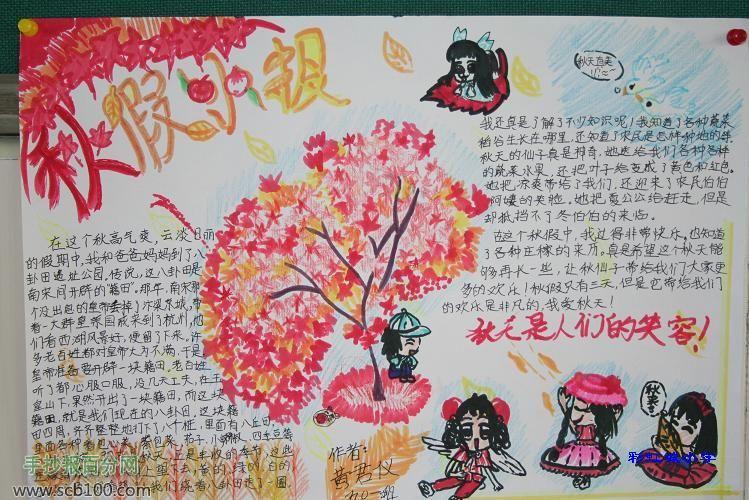 秋假小报
在这个秋高气爽,云淡日丽
的假期中,我和爸爸妈妈到了八
卦田遗址公园,传说,这八卦田是
南宋间开辟的"籍田"。那年,南宋那
个没出息的皇帝丢掉了汴梁京城,带
着一大群皇亲国戚来到了杭州,他
们看西湖风景好,便留了下来,许
多老百姓都对皇帝大为不满,于是,
皇帝准备要开辟一块籍田,老百姓
听了都心服口服,没几天工夫,在玉
皇山下,果然开出了一块籍田,而这块
籍田,就是我们现在的八卦田,这块籍
田四周,齐齐整整地
里面各种着包心菜
秋天,正是丰收的季节,这些
我们绕着八卦田走了一圈,
我还真是了解了不少知识呢!我知道了各种蔬菜
稻谷生长在哪里,还知道了农民是怎样种地的。
秋天的仙子真是神奇,她送给我们各种各样
的蔬菜水果,还把叶子给变成了黄色和红色。
她把凉爽带给了我们,还迎来了农民伯伯
阿姨的笑脸,她把夏公公给赶走,但是
却抵挡不了冬伯伯的来临。
在这个秋假中,我过得非常快乐,也知道
了各种庄稼的来历,真是希望这个秋天能
够再长一些,让秋仙子带给我们大家更
多的欢乐!秋假只有三天,但是它带给我们
的欢乐是非凡的,我爱秋天!
秋天是人们的笑容!
秋天真美
秋季
作者:
黄君仪
彩虹城小学
手抄报百分网
www.scb100.com